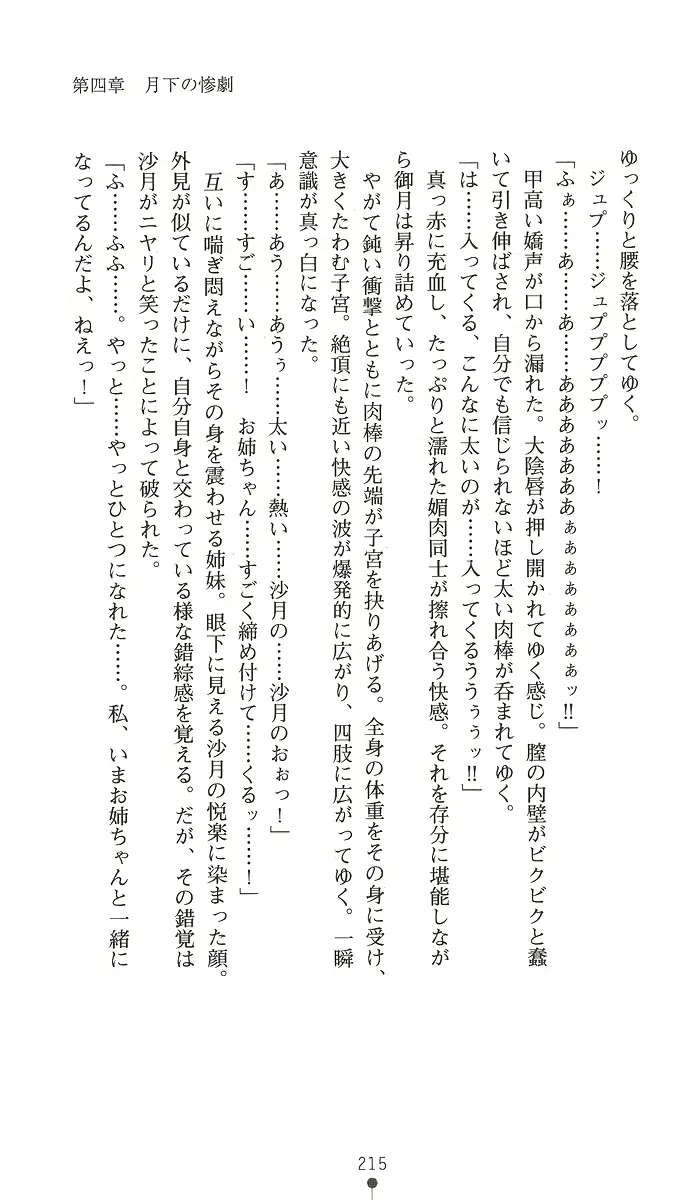 第四章　月下の惨劇
ゆっくりと腰を落としてゆく。
ジュプ……ジュププププッ……！
「ふぁ……あ……あ……ああああああぁぁぁぁぁぁぁッ‼」
甲高い嬌声が口から漏れた。大陰唇が押し開かれてゆく感じ。膣の内壁がビクビクと蠢
いて引き伸ばされ、自分でも信じられないほど太い肉棒が呑まれてゆく。
「は……入ってくる、こんなに太いのが……入ってくるううぅぅッ‼」
真っ赤に充血し、たっぷりと濡れた媚肉同士が擦れ合う快感。それを存分に堪能しなが
ら御月は昇り詰めていった。
やがて鈍い衝撃とともに肉棒の先端が子宮を抉りあげる。全身の体重をその身に受け、
大きくたわむ子宮。絶頂にも近い快感の波が爆発的に広がり、四肢に広がってゆく。一瞬
意識が真っ白になった。
「あ……あう……あうぅ……太い……熱い……沙月の……沙月のおぉっ！」
「す……すご……い……！　お姉ちゃん……すごく締め付けて……くるッ……！」
互いに喘ぎ悶えながらその身を震わせる姉妹。眼下に見える沙月の悦楽に染まった顔。
外見が似ているだけに、自分自身と交わっている様な錯綜感を覚える。だが、その錯覚は
沙月がニヤリと笑ったことによって破られた。
「ふ……ふふ……。やっと……やっとひとつになれた……。私、いまお姉ちゃんと一緒に
なってるんだよ、ねえっ！」
215